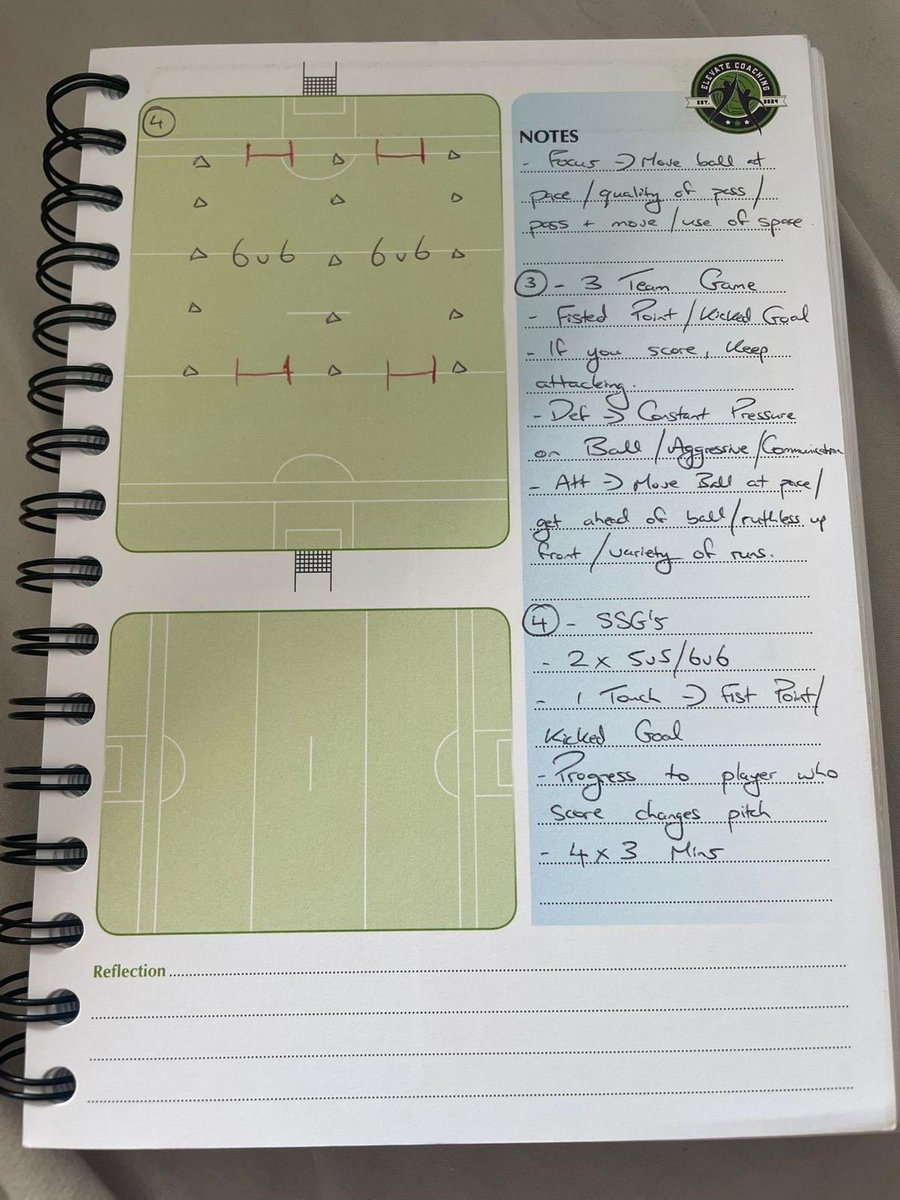 ELEVATE COACHING
EST. 2024
4
6v6 6v6
NOTES
- Focus → Move ball at
pace / quality of pass /
pass + move / use of space.
3 - 3 Team Game
- Fisted Point / Kicked Goal
- If you score, keep
attacking.
- Def → Constant Pressure
on Ball / Aggressive / Communication
- Att → Move Ball at pace /
get ahead of ball / ruthless up
front / variety of runs.
4 - SSG's
- 2 x 5v5/6v6
- 1 Touch → Fist Point /
Kicked Goal
- Progress to player who
score changes pitch
- 4 x 3 Mins
Reflection